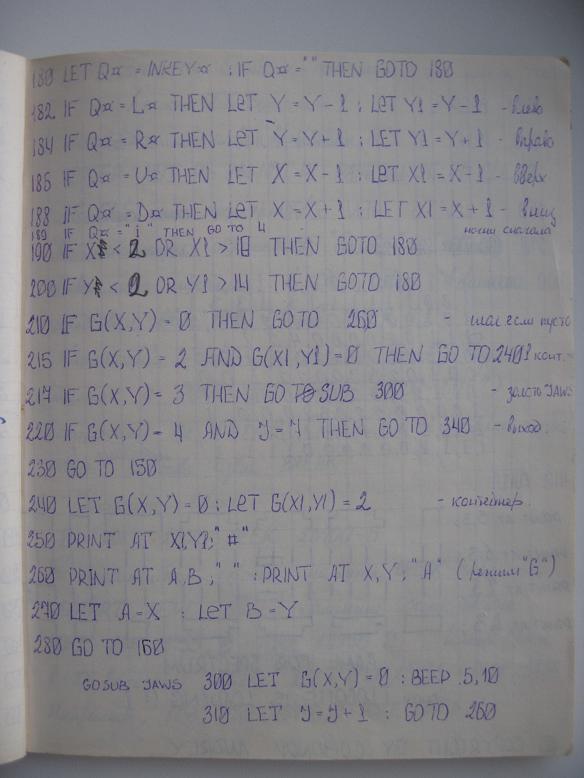 180 LET Q¤ = INKEY¤ : IF Q¤ = "" THEN GOTO 180
182 IF Q¤ = L¤ THEN LET Y = Y - 1 : LET Y1 = Y - 1 - влево
184 IF Q¤ = R¤ THEN LET Y = Y + 1 : LET Y1 = Y + 1 - вправо
186 IF Q¤ = U¤ THEN LET X = X - 1 : LET X1 = X - 1 - вверх
188 IF Q¤ = D¤ THEN LET X = X + 1 : LET X1 = X + 1 - вниз
189 IF Q¤ = "i" THEN GO TO 4 сначала
190 IF X < 2 OR X1 > THEN GOTO 180
200 IF Y < 2 OR Y1 > 14 THEN GOTO 180
210 IF G(X,Y) = 0 THEN GO TO 260 - шаг если пусто
215 IF G(X,Y) = 2 AND G(X1,Y1) = 0 THEN GO TO 240 конт.
217 IF G(X,Y) = 3 THEN GO SUB 300 - JAWS
220 IF G(X,Y) = 4 AND J = 7 THEN GO TO 340 - выход.
230 GO TO 150
240 LET G(X,Y) = 0 : LET G(X1,Y1) = 2 - контейнер.
250 PRINT AT X1,Y1; "#"
260 PRINT AT A,B; " " : PRINT AT X,Y; "A" (режим "G")
270 LET A = X : LET B = Y
280 GO TO 160
GOSUB JAWS 300 LET G(X,Y) = 0 : BEEP .5,10
310 LET J = J + 1 : GOTO 260